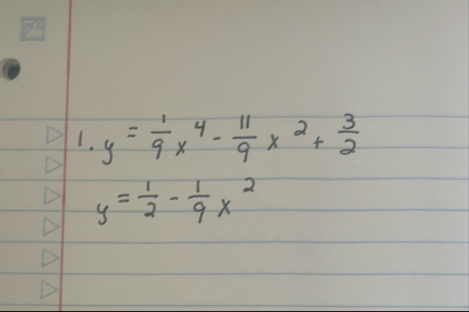 1. y = 1/9 x^4 - 11/9 x^2 + 3/2
y = 1/2 - 1/9 x^2